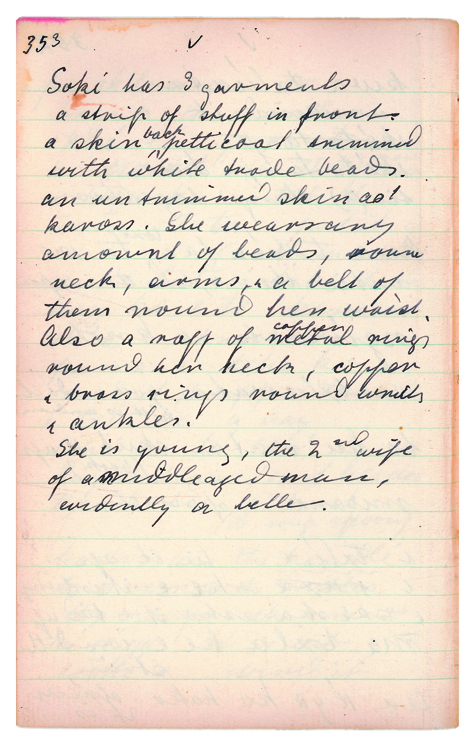 353 ✓
Soki has 3 garments
a strip of stuff in front.
a skin back petticoat trimmed
with white trade beads.
an untrimmed skin as
kaross. She wears any
amount of beads, round
neck, arms, & a belt of
them round her waist.
Also a raft of copper metal rings
round her neck, copper
& brass rings round wrists
& ankles.
She is young, the 2nd wife
of a middleaged man,
evidently a belle.